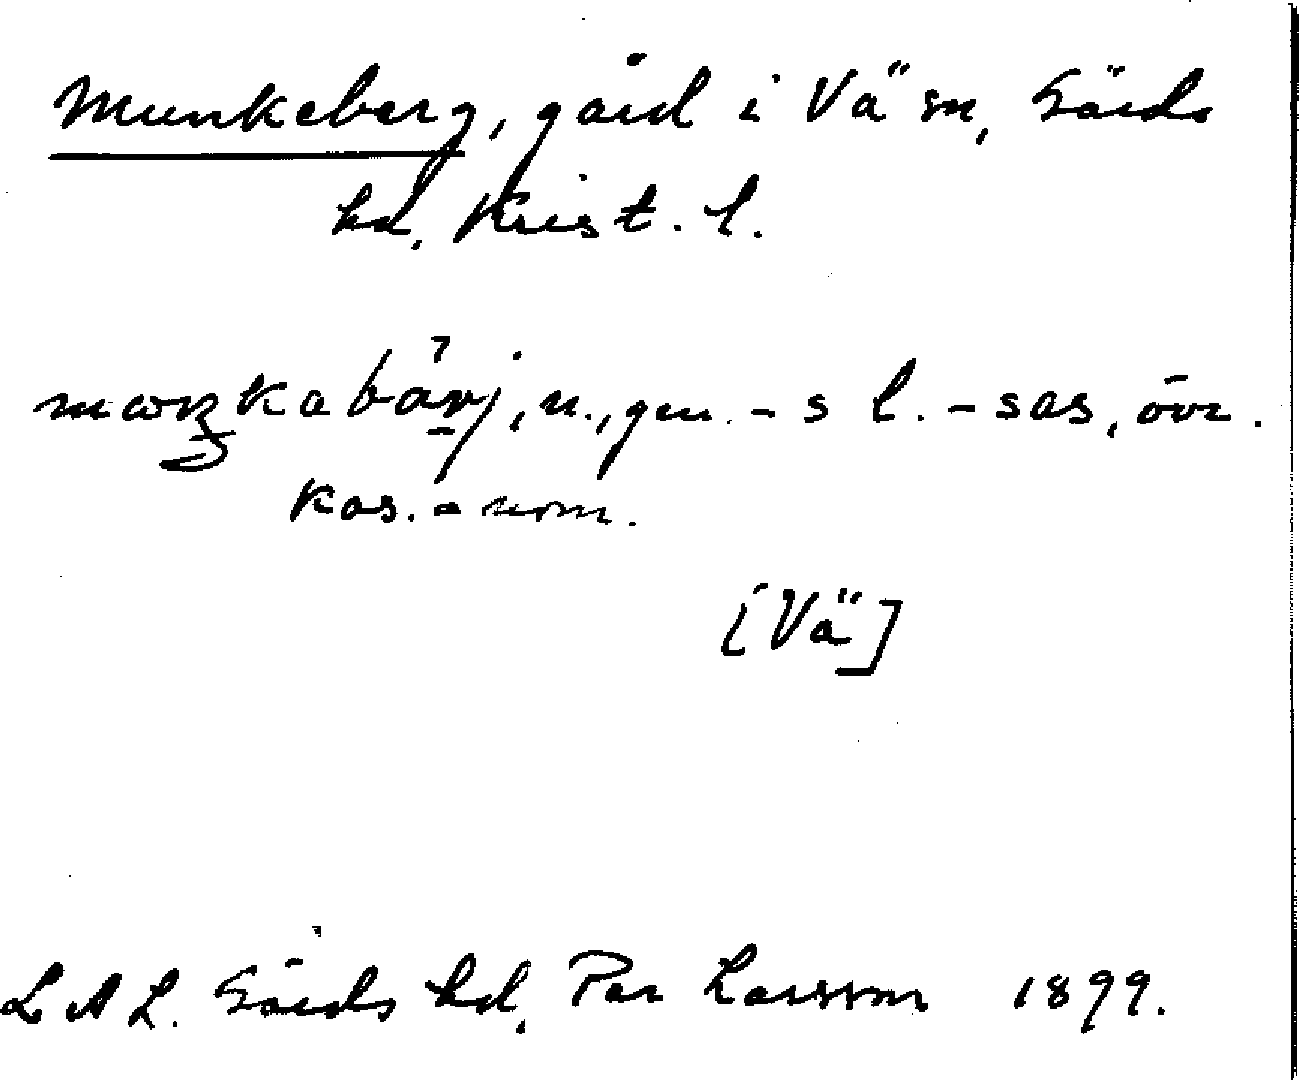 Munkeberg, gård i Vä sn, Gärds
hd. Krist. l.
n., gen. - s l. - sas, övr.
kas. = nom.
[Vä]
L A L. Gärds hd, Per Larsson 1899.